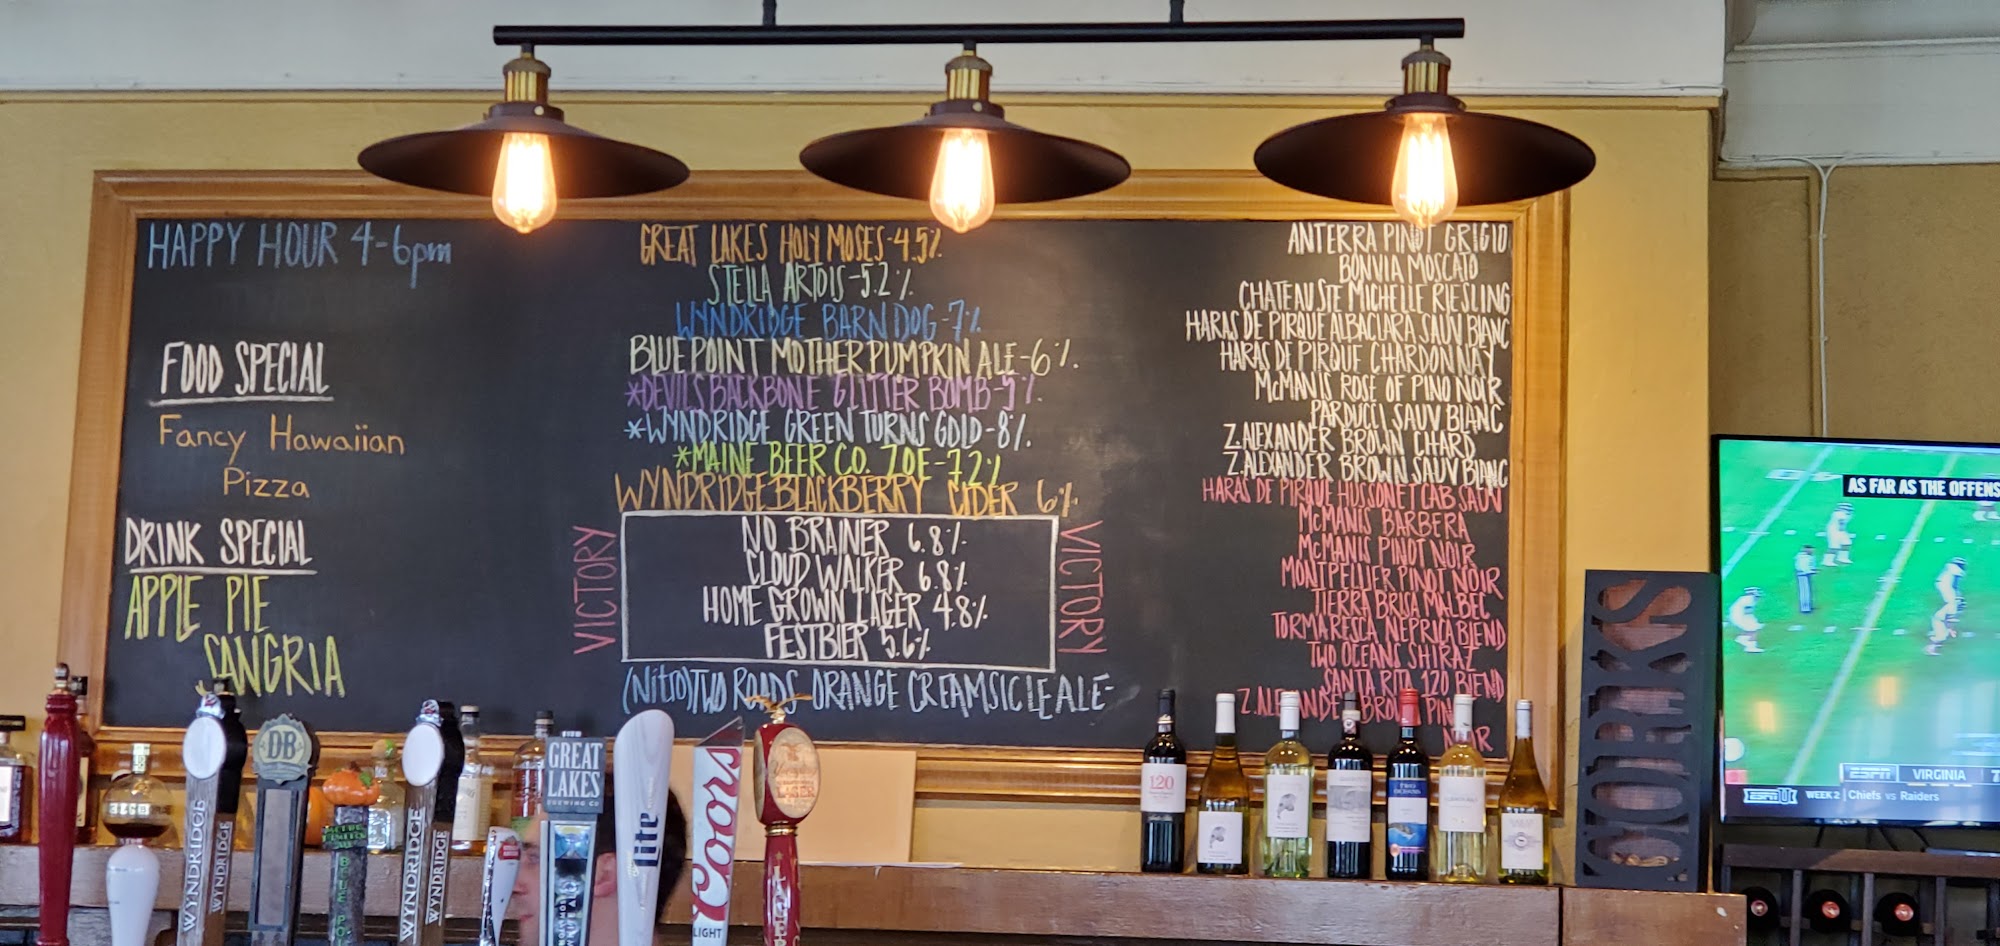 HAPPY HOUR 4-6pm
FOOD SPECIAL
Fancy Hawaiian
Pizza
DRINK SPECIAL
APPLE PIE
SANGRIA
GREAT LAKES HOLY MOSES-4.5%
STELLA ARTOIS-5.2%
WYNDRIDGE BARN DOG-7%
BLUE POINT MOTHER PUMPKIN ALE-6%
*DEVILS BACKBONE GLITTER BOMB-9%
*WYNDRIDGE GREEN TURNS GOLD-8%
*MAINE BEER CO. ZOE-7.2%
WYNDRIDGE BLACKBERRY CIDER 6%
VICTORY
NO BRAINER 6.8%
CLOUD WALKER 6.8%
HOME GROWN LAGER 4.8%
FESTBIER 5.6%
VICTORY
(Nitro) TWO ROADS ORANGE CREAMSICLE ALE-
ANTERRA PINOT GRIGIO
BONVIA MOSCATO
CHATEAU STE MICHELLE RIESLING
HARAS DE PIRQUE ALBACLARA SAUV BLANC
HARAS DE PIRQUE CHARDONNAY
McMANIS ROSE OF PINO NOIR
PARDUCCI SAUV BLANC
Z.ALEXANDER BROWN CHARD
Z.ALEXANDER BROWN SAUV BLANC
HARAS DE PIRQUE HUSSONET CAB SAUV
McMANIS BARBERA
McMANIS PINOT NOIR
MONTPELLIER PINOT NOIR
TIERRA BRISA MALBEC
TORMARESCA NEPRICA BLEND
TWO OCEANS SHIRAZ
SANTA RITA 120 BLEND
Z.ALEXANDER BROWN PIN
NOIR
AS FAR AS THE OFFENS
ESPN VIRGINIA
ESPNU WEEK 2 Chiefs vs Raiders
CORKS
WYNDRIDGE
WYNDRIDGE
DB
BLUE
WYNDRIDGE
WYNDRIDGE
GREAT
LAKES
BREWING CO
lite
Coors
LIGHT
LAGER
120
TWO
OCEANS